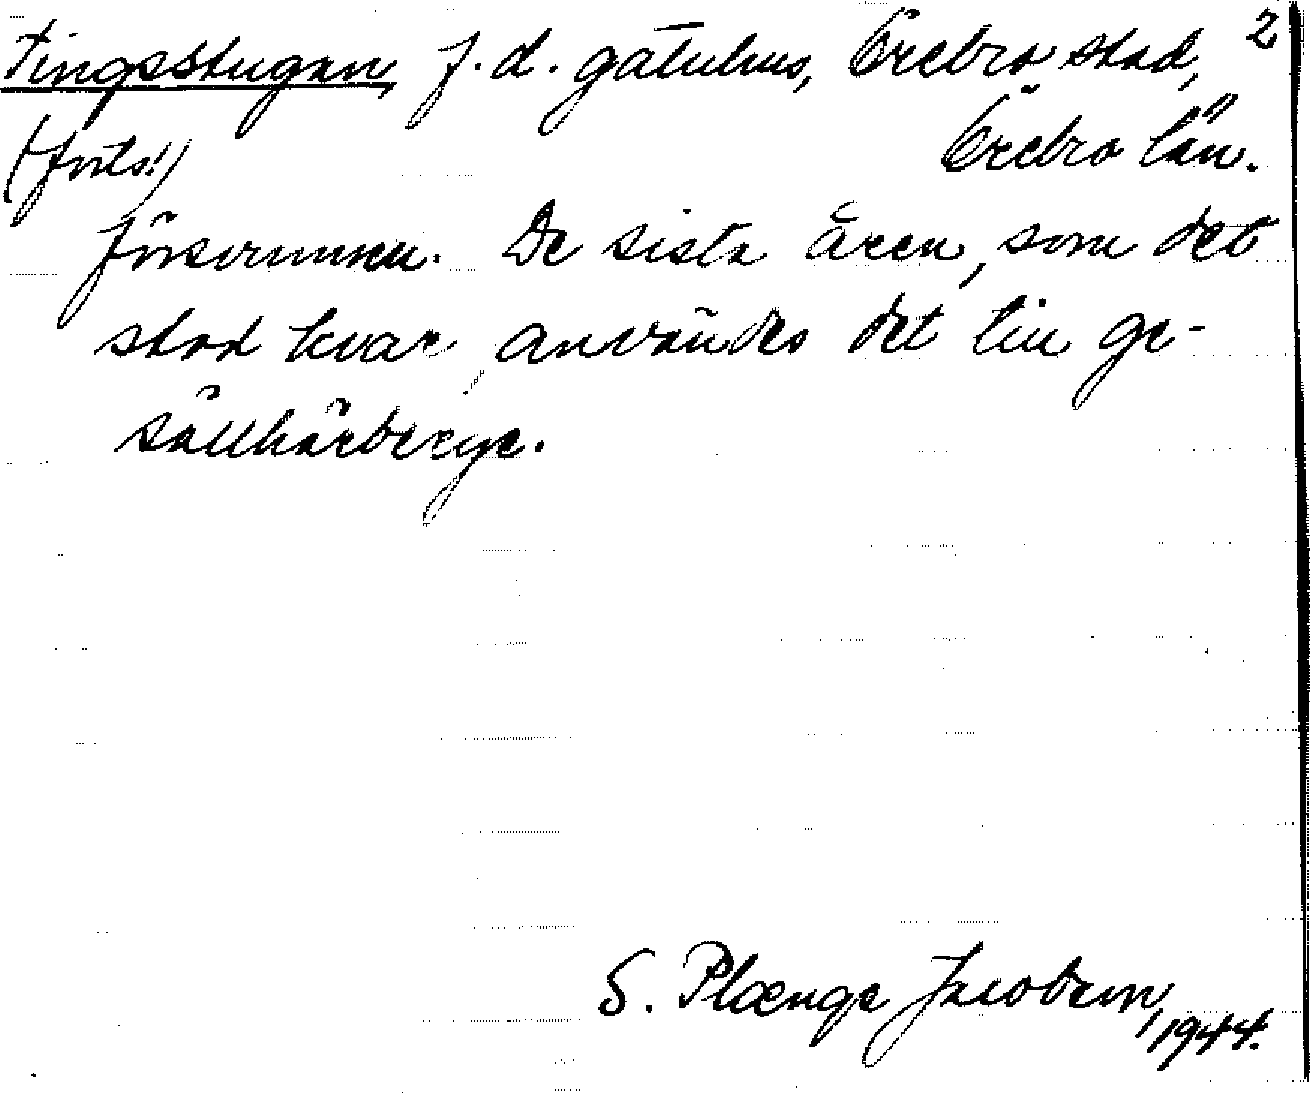 Tingsstugan, f.d. gatuhus, Örebro stad, 2
(forts.) Örebro län.
försvunnen. De sista åren, som det
stod kvar, användes det till ge-
sällhärberge.
S. Plænge Jacobson, 1944.